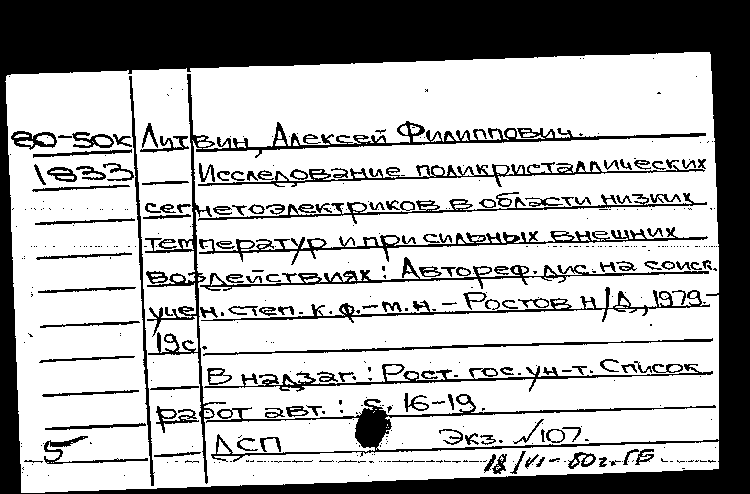 80-50к Литвин, Алексей Филиппович.
1833 Исследование поликристаллических
сегнетоэлектриков в области низких
температур и при сильных внешних
воздействиях: Автореф. дис. на соиск.
учен. степ. к. ф.-м. н. - Ростов н/Д, 1979.-
19с.
В надзаг.: Рост. гос. ун-т. Список
работ авт.: с. 16-19.
5 ДСП Экз. №107.
18/VI-80г. ГБ